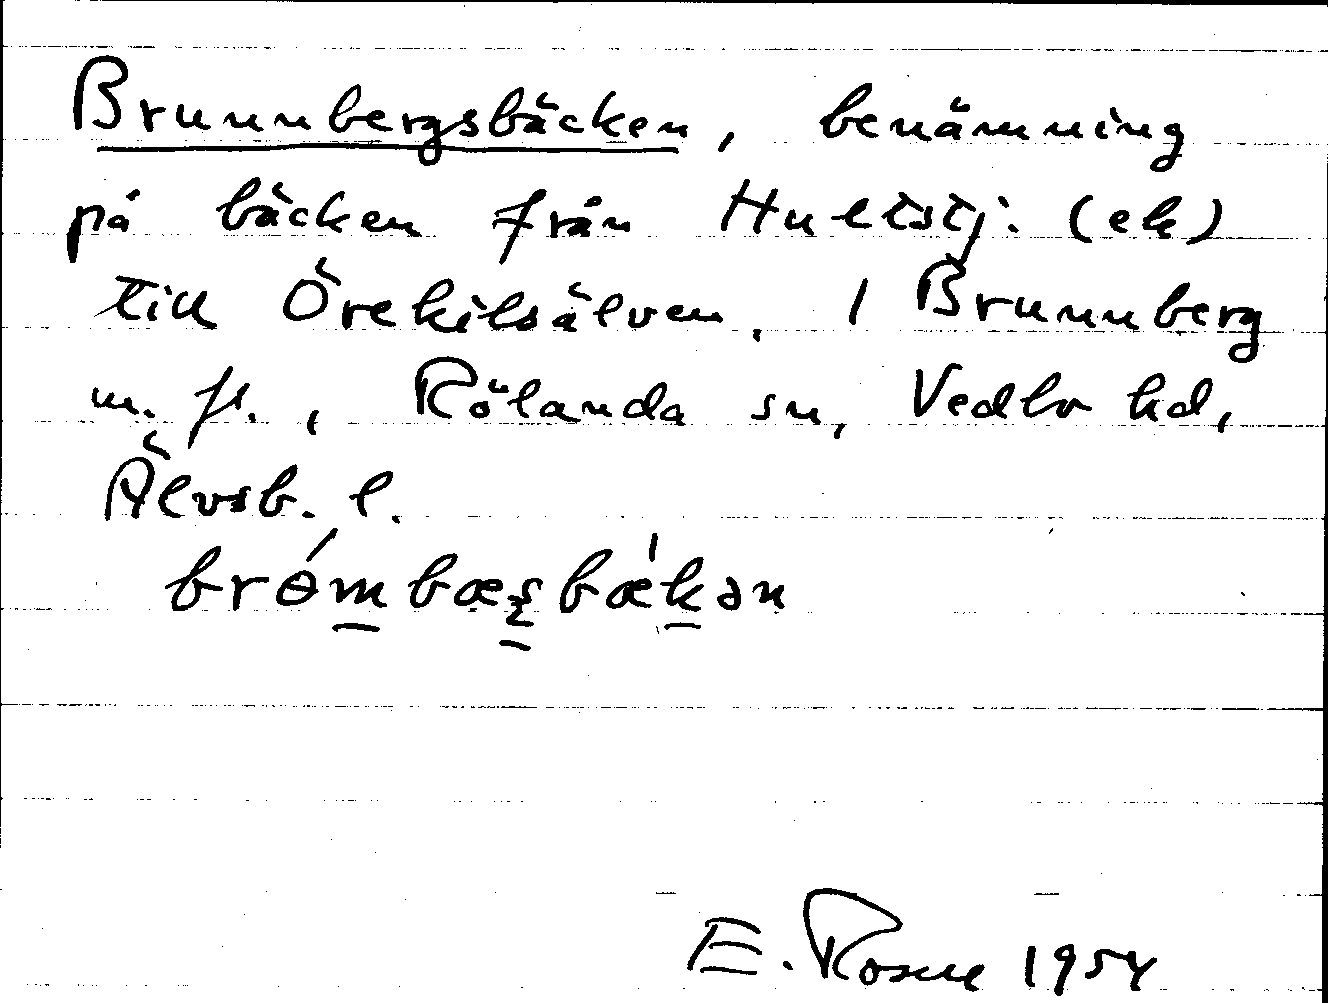 Brunnbergsbäcken, benämning
på bäcken från Hultstj. (ek)
till Örekilsälven. I Brunnberg
m. fl., Rölanda sn, Vedbo hd,
Älvsb. l.
brɵ́mbæʂbækən
E. Rosell 1954